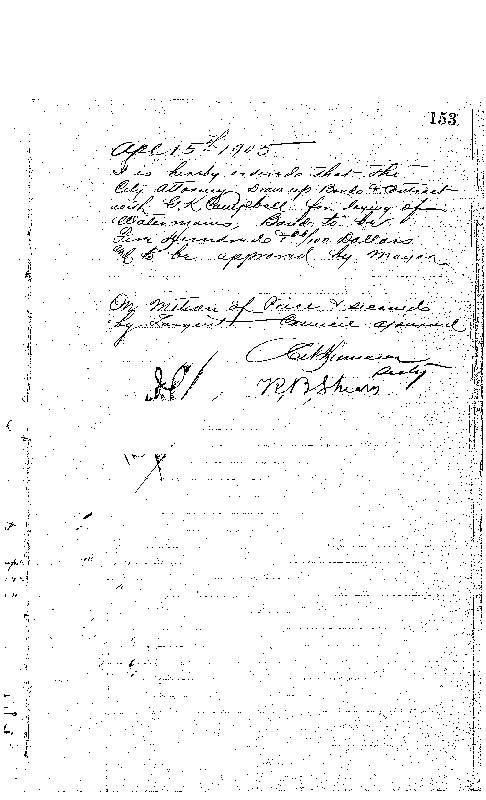 153
Apl 15th 1905
It is hereby ordered that the
City Attorney Draw up Bonds & Contract
with C.K. Campbell for laying of
Watermains, Bonds to be
Five Hundred & 00/100 Dollars
to be approved by Mayor
On Motion of Price & seconded
by Sargent Council adjourned
R.B. Shears